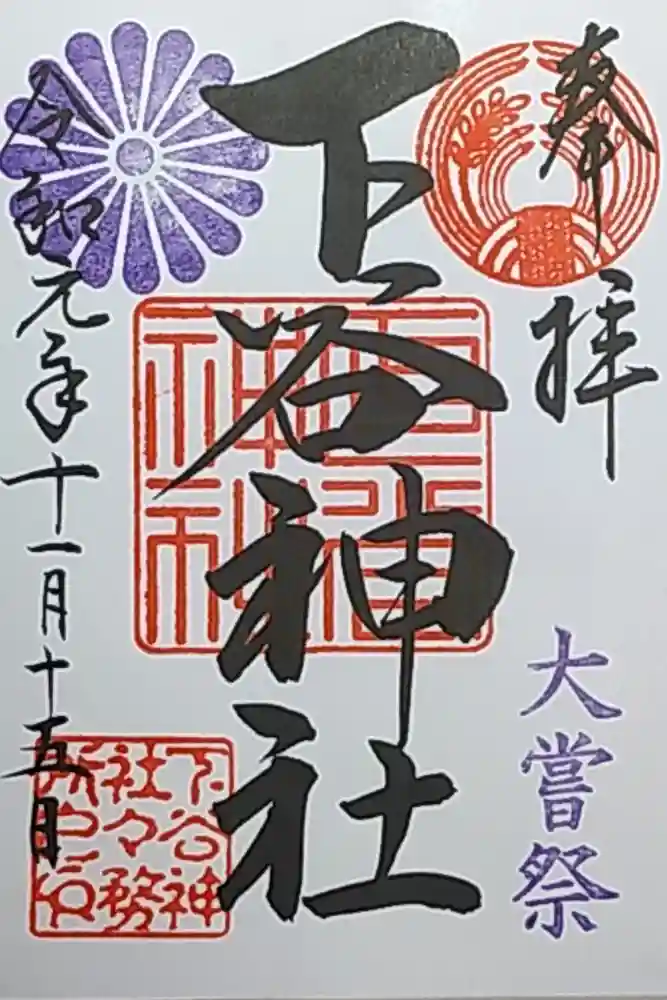 奉拝
大嘗祭
下谷神社
下谷神社
令和元年十一月十五日
下谷神社々務所之印